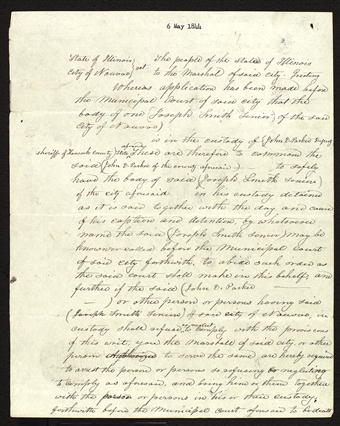 6 May 1844
State of Illinois } sct The people of the state of Illinois
City of Nauvoo } to the Marshal of said city. Greeting
Whereas application has been made before
the Municipal Court of said city that the
body of one Joseph Smith Senior (of the said
City of Nauvoo)
is in the custody of (John D. Parker Deputy
sheriff of Hancock County) These are therefore to command the
said (John D. Parker of the county aforesaid) to safely
have the body of said (Joseph Smith Senior)
of the city aforesaid in his custody detained
as it is said together with the day and cause
of his caption and detention, by whatsoever
name the said (Joseph Smith Senior) may be
known or called before the Municipal Court
of said city forthwith, to abide such order as
the said court shall make in this behalf; and
further if the said (John D. Parker
) or other person or persons having said
(Joseph Smith Senior) of said city of Nauvoo, in
custody shall refuse or neglect to comply with the provisions
of this writ, you the Marshall of said city or other
person authorized to serve the same are hereby required
to arrest the person or persons so refusing or neglecting
to comply as aforesaid, and bring him or them together
with the person or persons in his or their custody,
forthwith before the Municipal Court aforesaid to be dealt